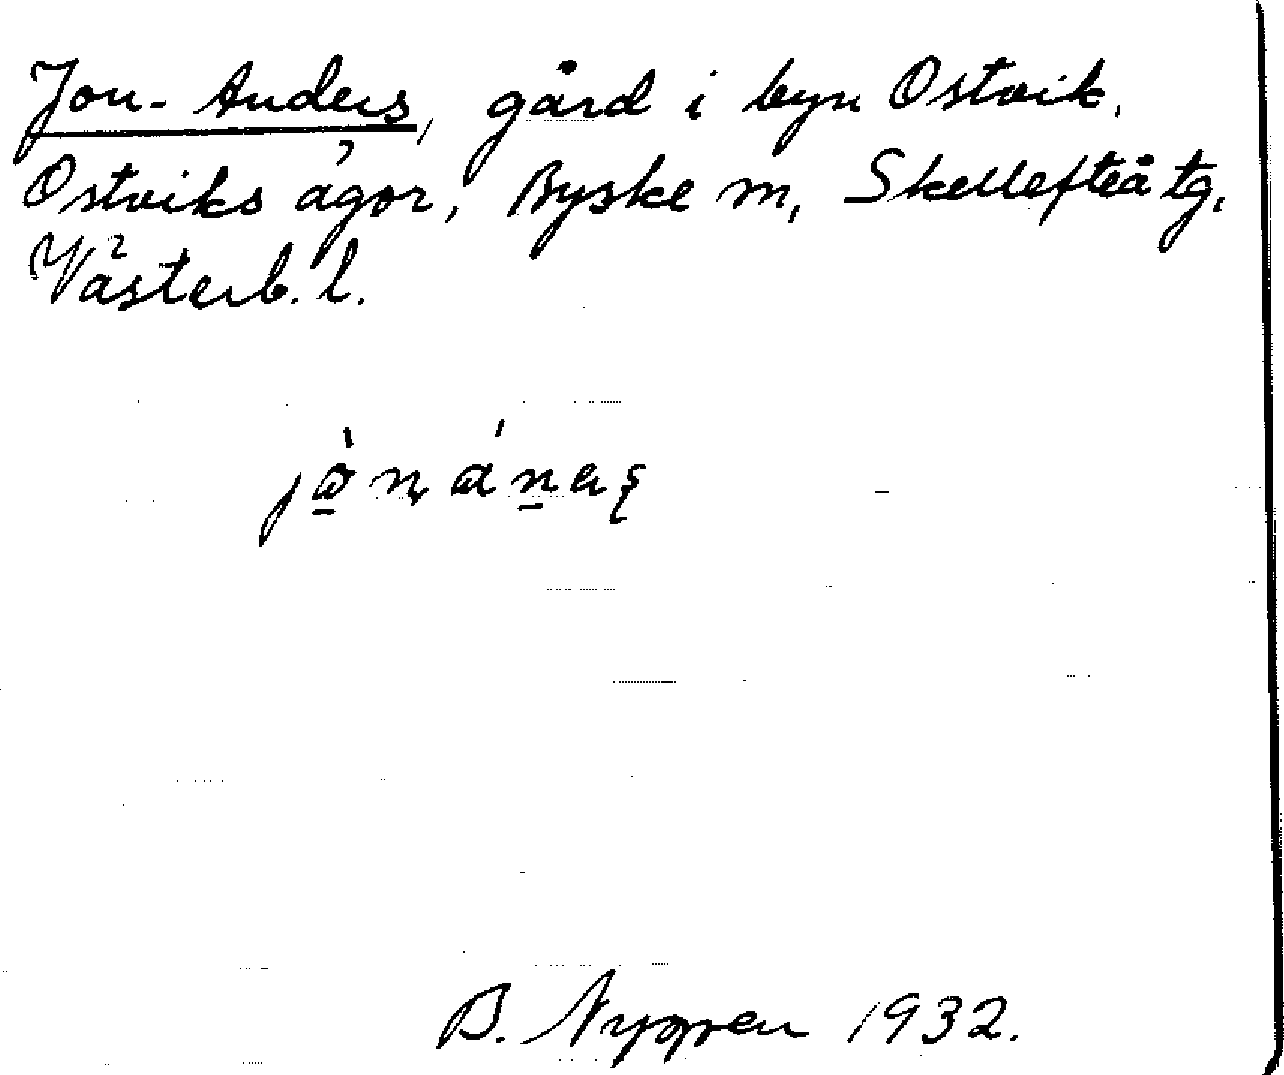 Jon-Anders, gård i byn Ostvik,
Ostviks ägor, Byske m, Skellefteå tg.
Västerb. l.
B. Nygren 1932.